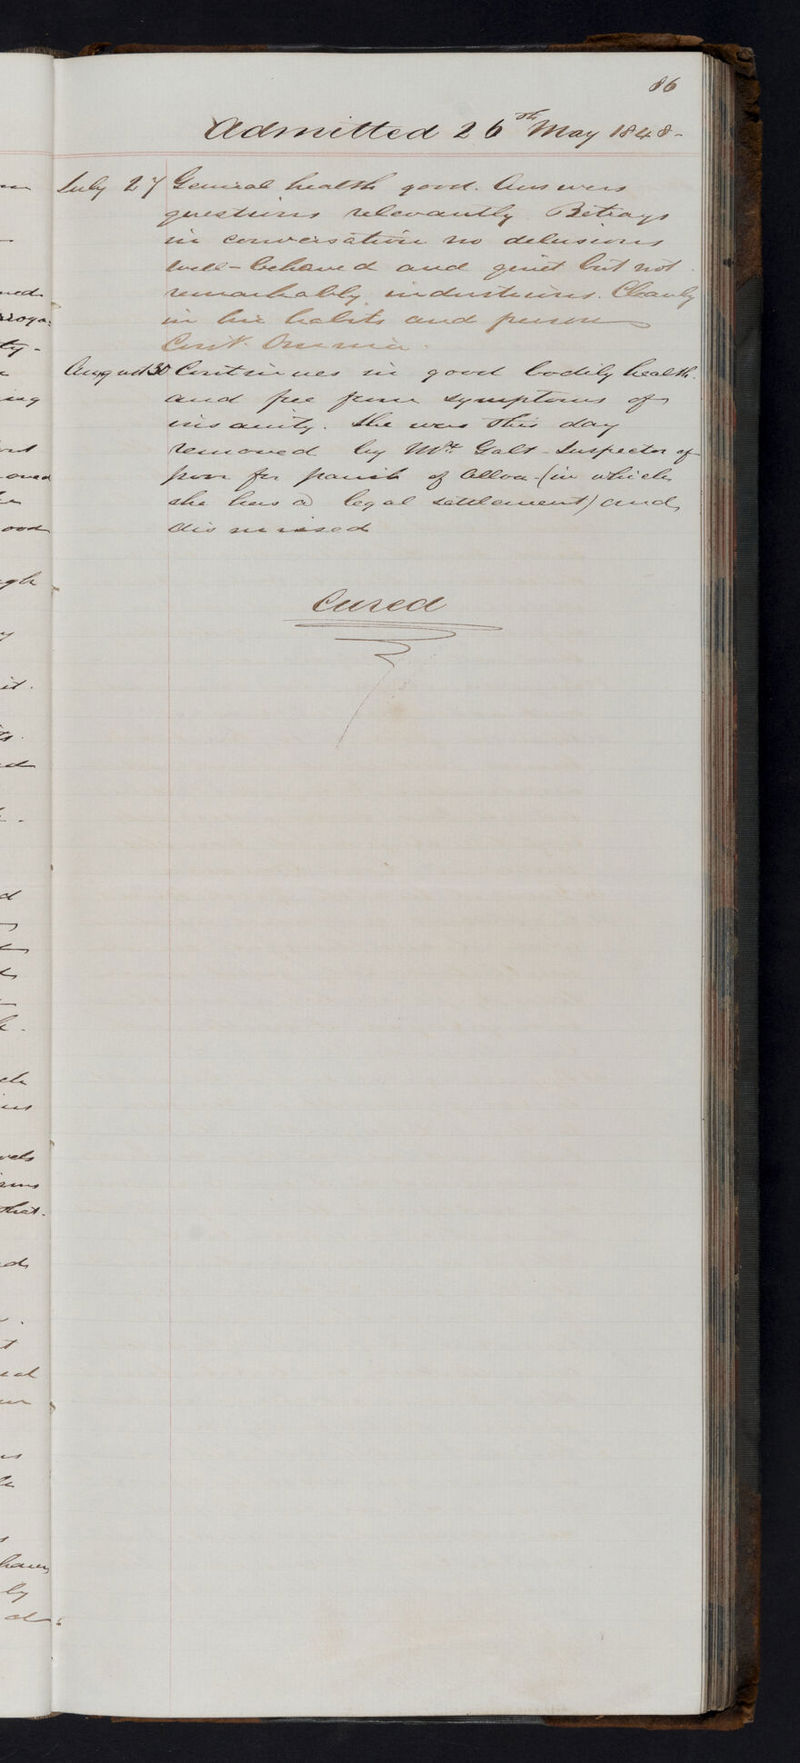 86
Admitted 26th May 1848-
July 27 General health good. Answers
questions relevantly. Betrays
in conversation no delusions
well-behaved and quiet but not
remarkably industrious. Cleanly
in her habits and person
Cont. Omnia.
August 30 Continues in good bodily health
and free from symptoms of
insanity. She was this day
removed by Mr. Galt - Inspector of
poor for parish of Alloa - (in which
she has a legal settlement) and
dismissed
Cured